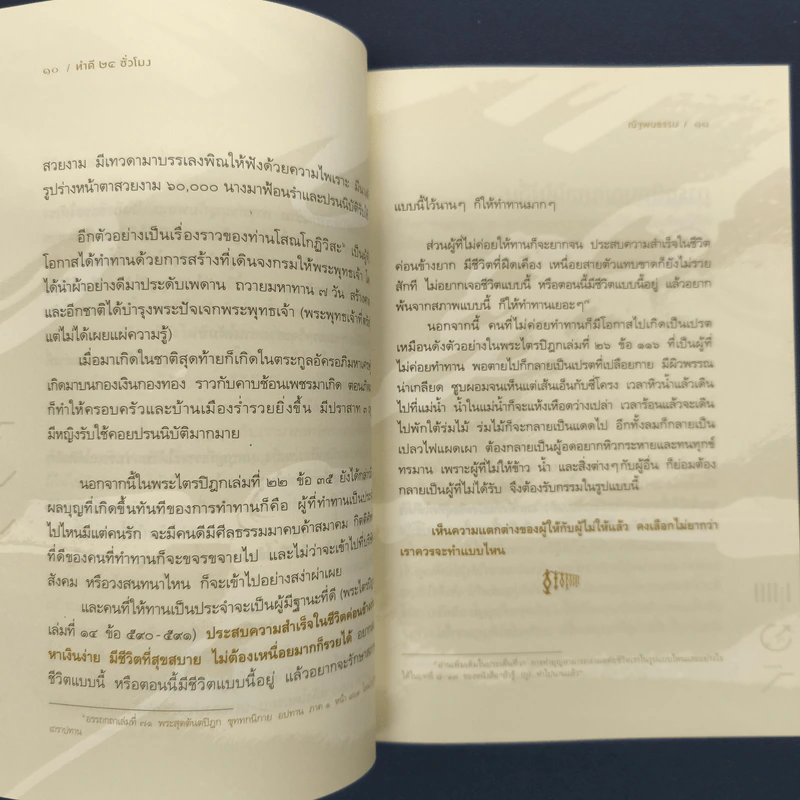 ๑๐ / ทำดี ๒๔ ชั่วโมง
สวยงาม มีเทวดามาบรรเลงพิณให้ฟังด้วยความไพเราะ
รูปร่างหน้าตาสวยงาม ๖๐,๐๐๐ นางมาฟ้อนรำและปรนนิบัติ
อีกตัวอย่างเป็นเรื่องราวของท่านโสณโกฏิวิสะ*
โอกาสได้ทำทานด้วยการสร้างที่เดินจงกรมให้พระพุทธเจ้า
ได้นำผ้าอย่างดีมาประดับเพดาน ถวายมหาทาน ๗ วัน
และอีกชาติได้บำรุงพระปัจเจกพระพุทธเจ้า (พระพุทธเจ้าที่
แต่ไม่ได้เผยแผ่ความรู้)
เมื่อมาเกิดในชาติสุดท้ายก็เกิดในตระกูลอัครอภิมหา
เกิดมาบนกองเงินกองทอง ราวกับคาบช้อนเพชรมาเกิด
ก็ทำให้ครอบครัวและบ้านเมืองร่ำรวยยิ่งขึ้น มีปราสาท
มีหญิงรับใช้คอยปรนนิบัติมากมาย
นอกจากนี้ในพระไตรปิฎกเล่มที่ ๒๒ ข้อ ๓๕ ยังได้
ผลบุญที่เกิดขึ้นทันทีของการทำทานก็คือ ผู้ที่ทำทานเป็น
ไปไหนมีแต่คนรัก จะมีคนดีมีศีลธรรมมาคบค้าสมาคม
ที่ดีของคนที่ทำทานก็จะขจรขจายไป และไม่ว่าจะเข้าไป
สังคม หรือวงสนทนาไหน ก็จะเข้าไปอย่างสง่าผ่าเผย
และคนที่ให้ทานเป็นประจำจะเป็นผู้มีฐานะที่ดี
เล่มที่ ๑๔ ข้อ ๕๙๐-๕๙๑) ประสบความสำเร็จในชีวิต
หาเงินง่าย มีชีวิตที่สุขสบาย ไม่ต้องเหนื่อยมากก็รวยได้
ชีวิตแบบนี้ หรือตอนนี้มีชีวิตแบบนี้อยู่ แล้วอยากจะรักษา
*อรรถกถาเล่มที่ ๗๑ พระสุตตันตปิฎก ขุททกนิกาย อปทาน ภาค ๑
เถราปทาน
ณัฐพบธรรม / ๑๑
แบบนี้ไว้นานๆ ก็ให้ทำทานมากๆ
ส่วนผู้ที่ไม่ค่อยให้ทานก็จะยากจน ประสบความสำเร็จในชีวิต
ค่อนข้างยาก มีชีวิตที่ฝืดเคือง เหนื่อยสายตัวแทบขาดก็ยังไม่รวย
สักที ไม่อยากเจอชีวิตแบบนี้ หรือตอนนี้มีชีวิตแบบนี้อยู่ แล้วอยาก
พ้นจากสภาพแบบนี้ ก็ให้ทำทานเยอะๆ*
นอกจากนี้ คนที่ไม่ค่อยทำทานก็มีโอกาสไปเกิดเป็นเปรต
เหมือนดังตัวอย่างในพระไตรปิฎกเล่มที่ ๒๖ ข้อ ๑๑๖ ที่เป็นผู้ที่
ไม่ค่อยทำทาน พอตายไปก็กลายเป็นเปรตที่เปลือยกาย มีผิวพรรณ
น่าเกลียด ซูบผอมจนเห็นแต่เส้นเอ็นกับซี่โครง เวลาหิวน้ำแล้วเดิน
ไปที่แม่น้ำ น้ำในแม่น้ำก็จะแห้งเหือดว่างเปล่า เวลาร้อนแล้วจะเดิน
ไปพักใต้ร่มไม้ ร่มไม้ก็จะกลายเป็นแดดไป อีกทั้งลมก็กลายเป็น
เปลวไฟแผดเผา ต้องกลายเป็นผู้อดอยากหิวกระหายและทนทุกข์
ทรมาน เพราะผู้ที่ไม่ให้ข้าว น้ำ และสิ่งต่างๆ กับผู้อื่น ก็ย่อมต้อง
กลายเป็นผู้ที่ไม่ได้รับ จึงต้องรับกรรมในรูปแบบนี้
เห็นความแตกต่างของผู้ให้กับผู้ไม่ให้แล้ว คงเลือกไม่ยากว่า
เราควรจะทำแบบไหน